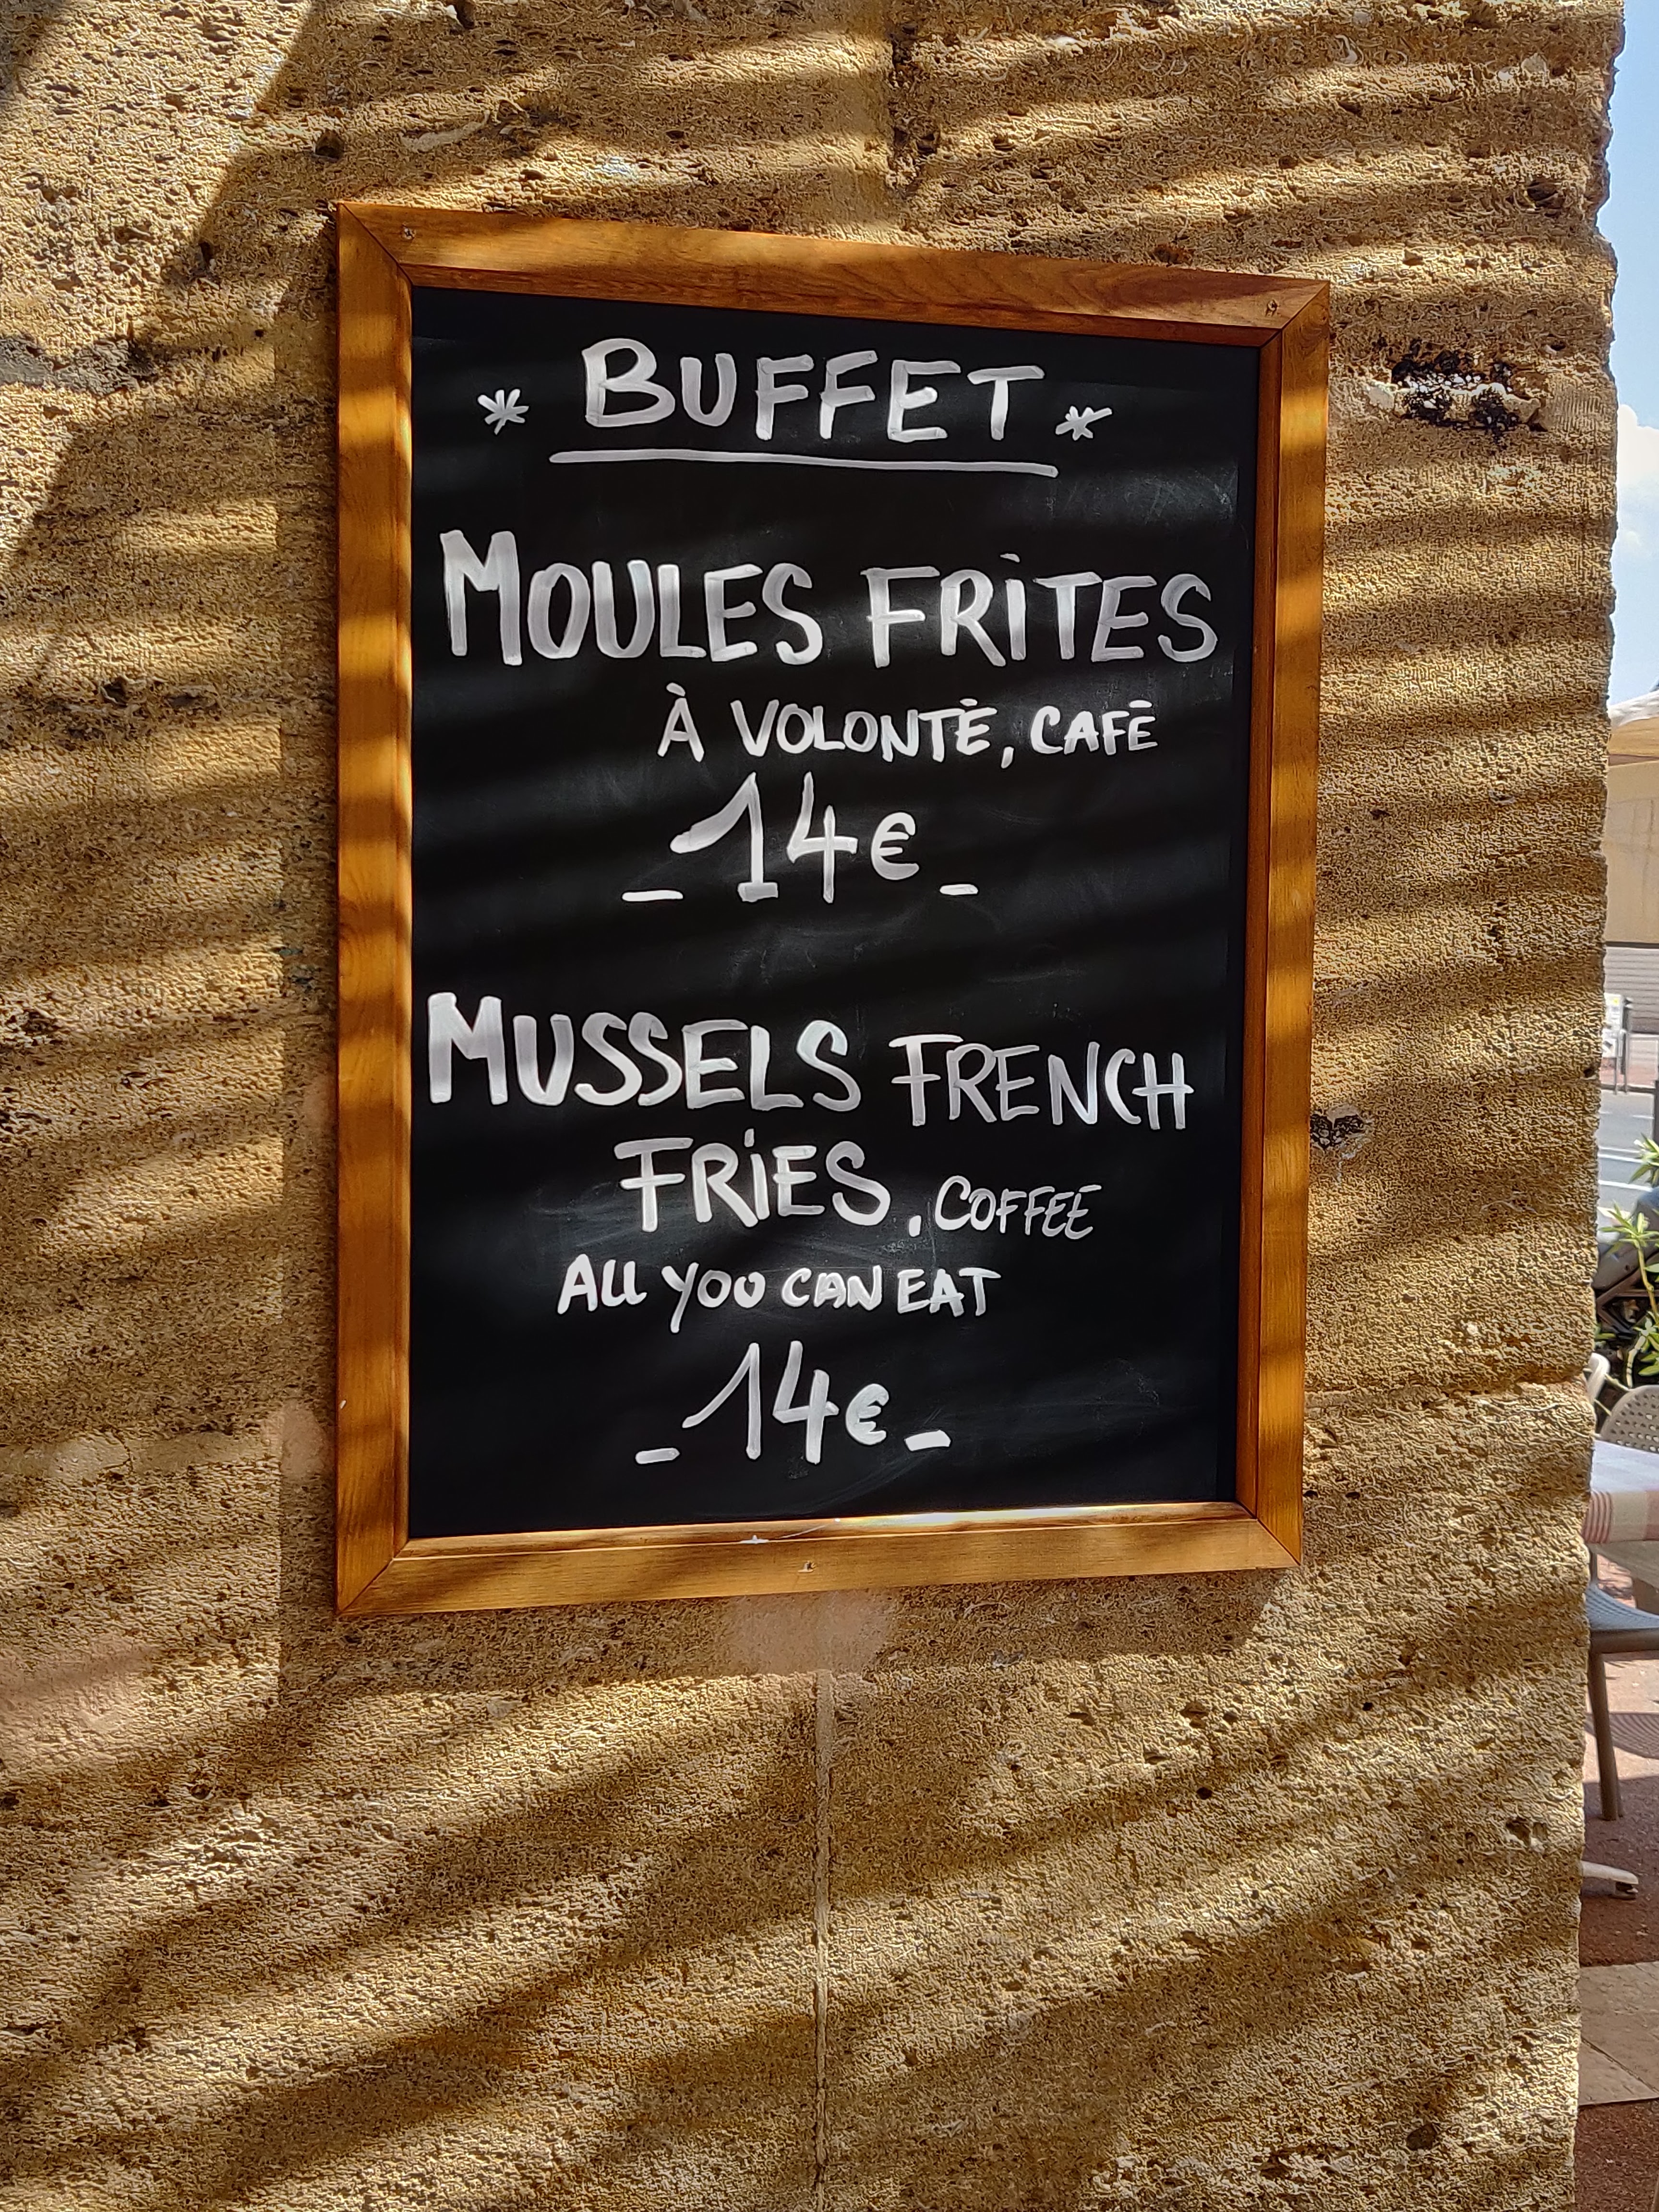 * BUFFET *
MOULES FRITES
À VOLONTÉ, CAFÉ
- 14€ -
MUSSELS FRENCH
FRIES, COFFEE
ALL YOU CAN EAT
- 14€ -